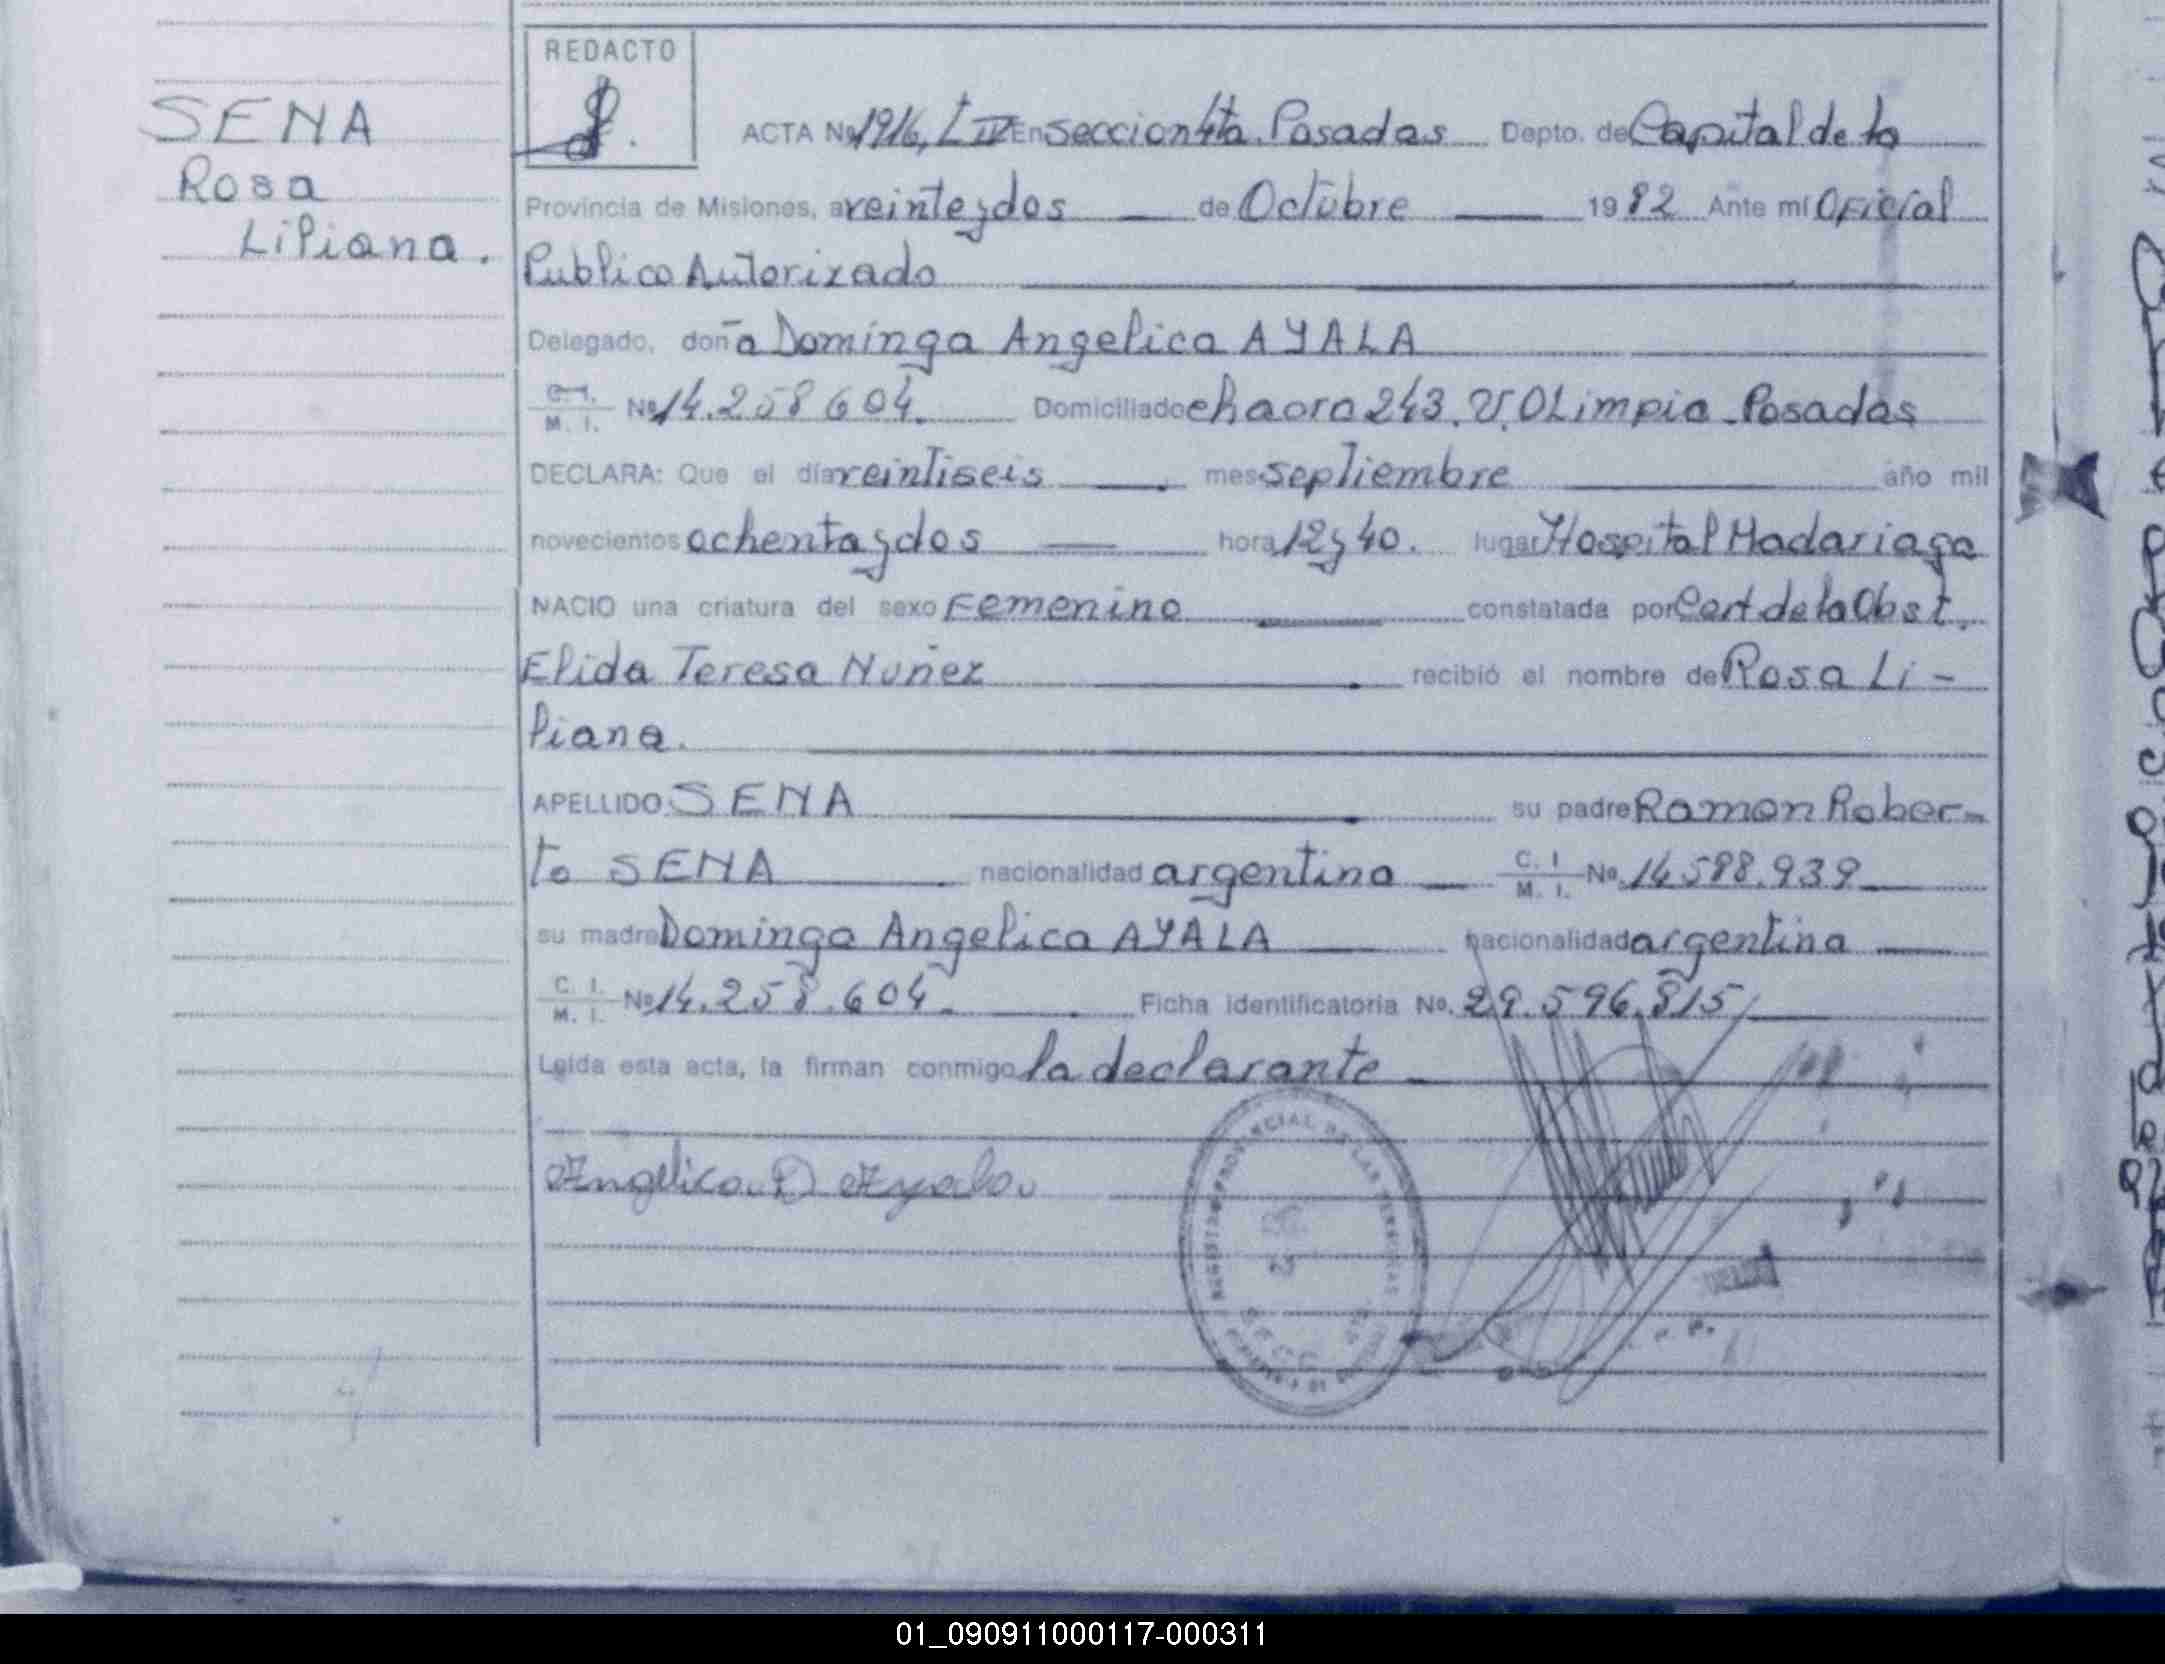 REDACTO
SENA
Rosa
Liliana.
ACTA Nº 1916, T IV En seccion 4ta. Posadas Depto. de Capital de la
Provincia de Misiones, a veinteydos de Octubre 1982 Ante mí Oficial
Publico Autorizado
Delegado, doña Dominga Angelica AYALA
C. I. M. I. Nº 14.258604. Domiciliado chacra 243. V. OLimpia - Posadas
DECLARA: Que el día veintiseis mes septiembre año mil
novecientos ochentaydos hora 12y40. lugar Hospital Madariaga
NACIO una criatura del sexo Femenino constatada por Cert de la Obst.
Elida Teresa Nuñez recibió el nombre de Rosa Li-
liana.
APELLIDO SENA su padre Ramon Rober-
to SENA nacionalidad argentina C. I M. I. No. 14588.939
su madre Dominga Angelica AYALA nacionalidad argentina
C. I. M. I. Nº 14.258.604. Ficha identificatoria No. 29.596.815
Leida esta acta, la firman conmigo la declarante
Angelica D Ayala
PROVINCIAL DE LAS PERSONAS
01_090911000117-000311